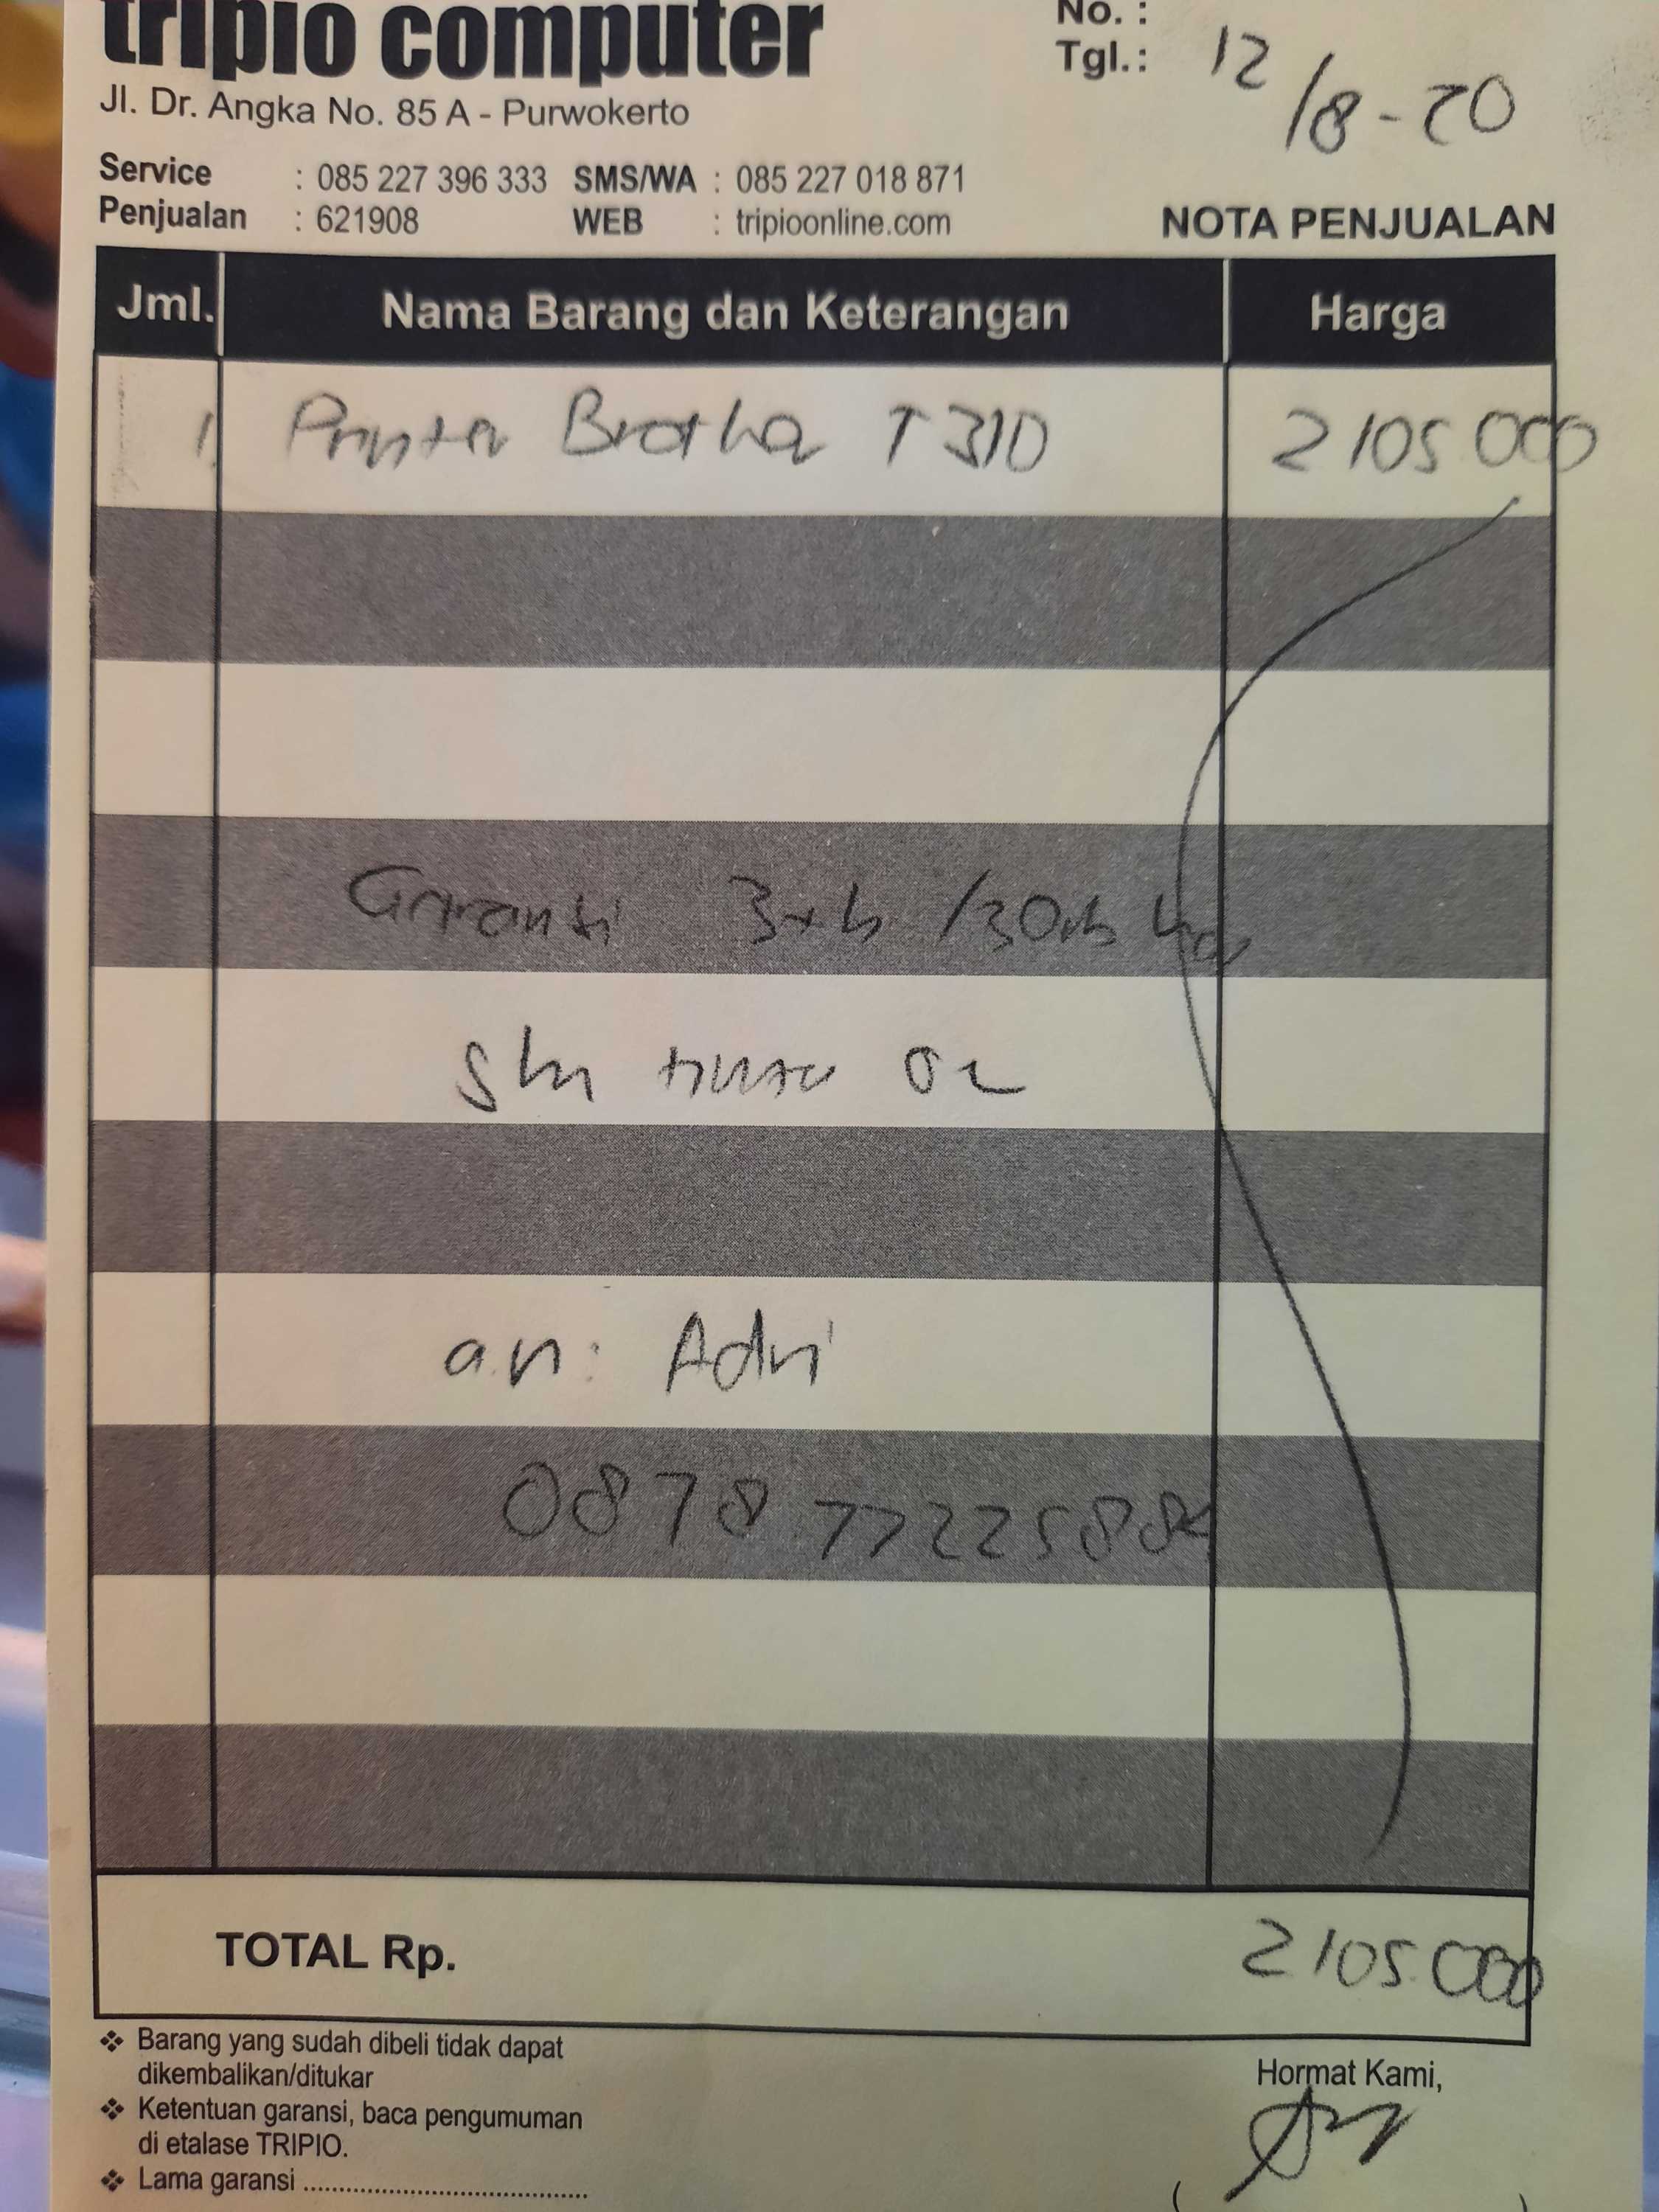 tripio computer
No. :
Tgl.: 12/8-20
Jl. Dr. Angka No. 85 A - Purwokerto
Service : 085 227 396 333 SMS/WA : 085 227 018 871
Penjualan : 621908 WEB : tripioonline.com
NOTA PENJUALAN
Jml. Nama Barang dan Keterangan Harga
1 Printer Brother T310 2105.000
Garansi 3th /30rb
an: Adri
TOTAL Rp. 2105.000
Barang yang sudah dibeli tidak dapat
dikembalikan/ditukar
Ketentuan garansi, baca pengumuman
di etalase TRIPIO.
Lama garansi ..........................................
Hormat Kami,